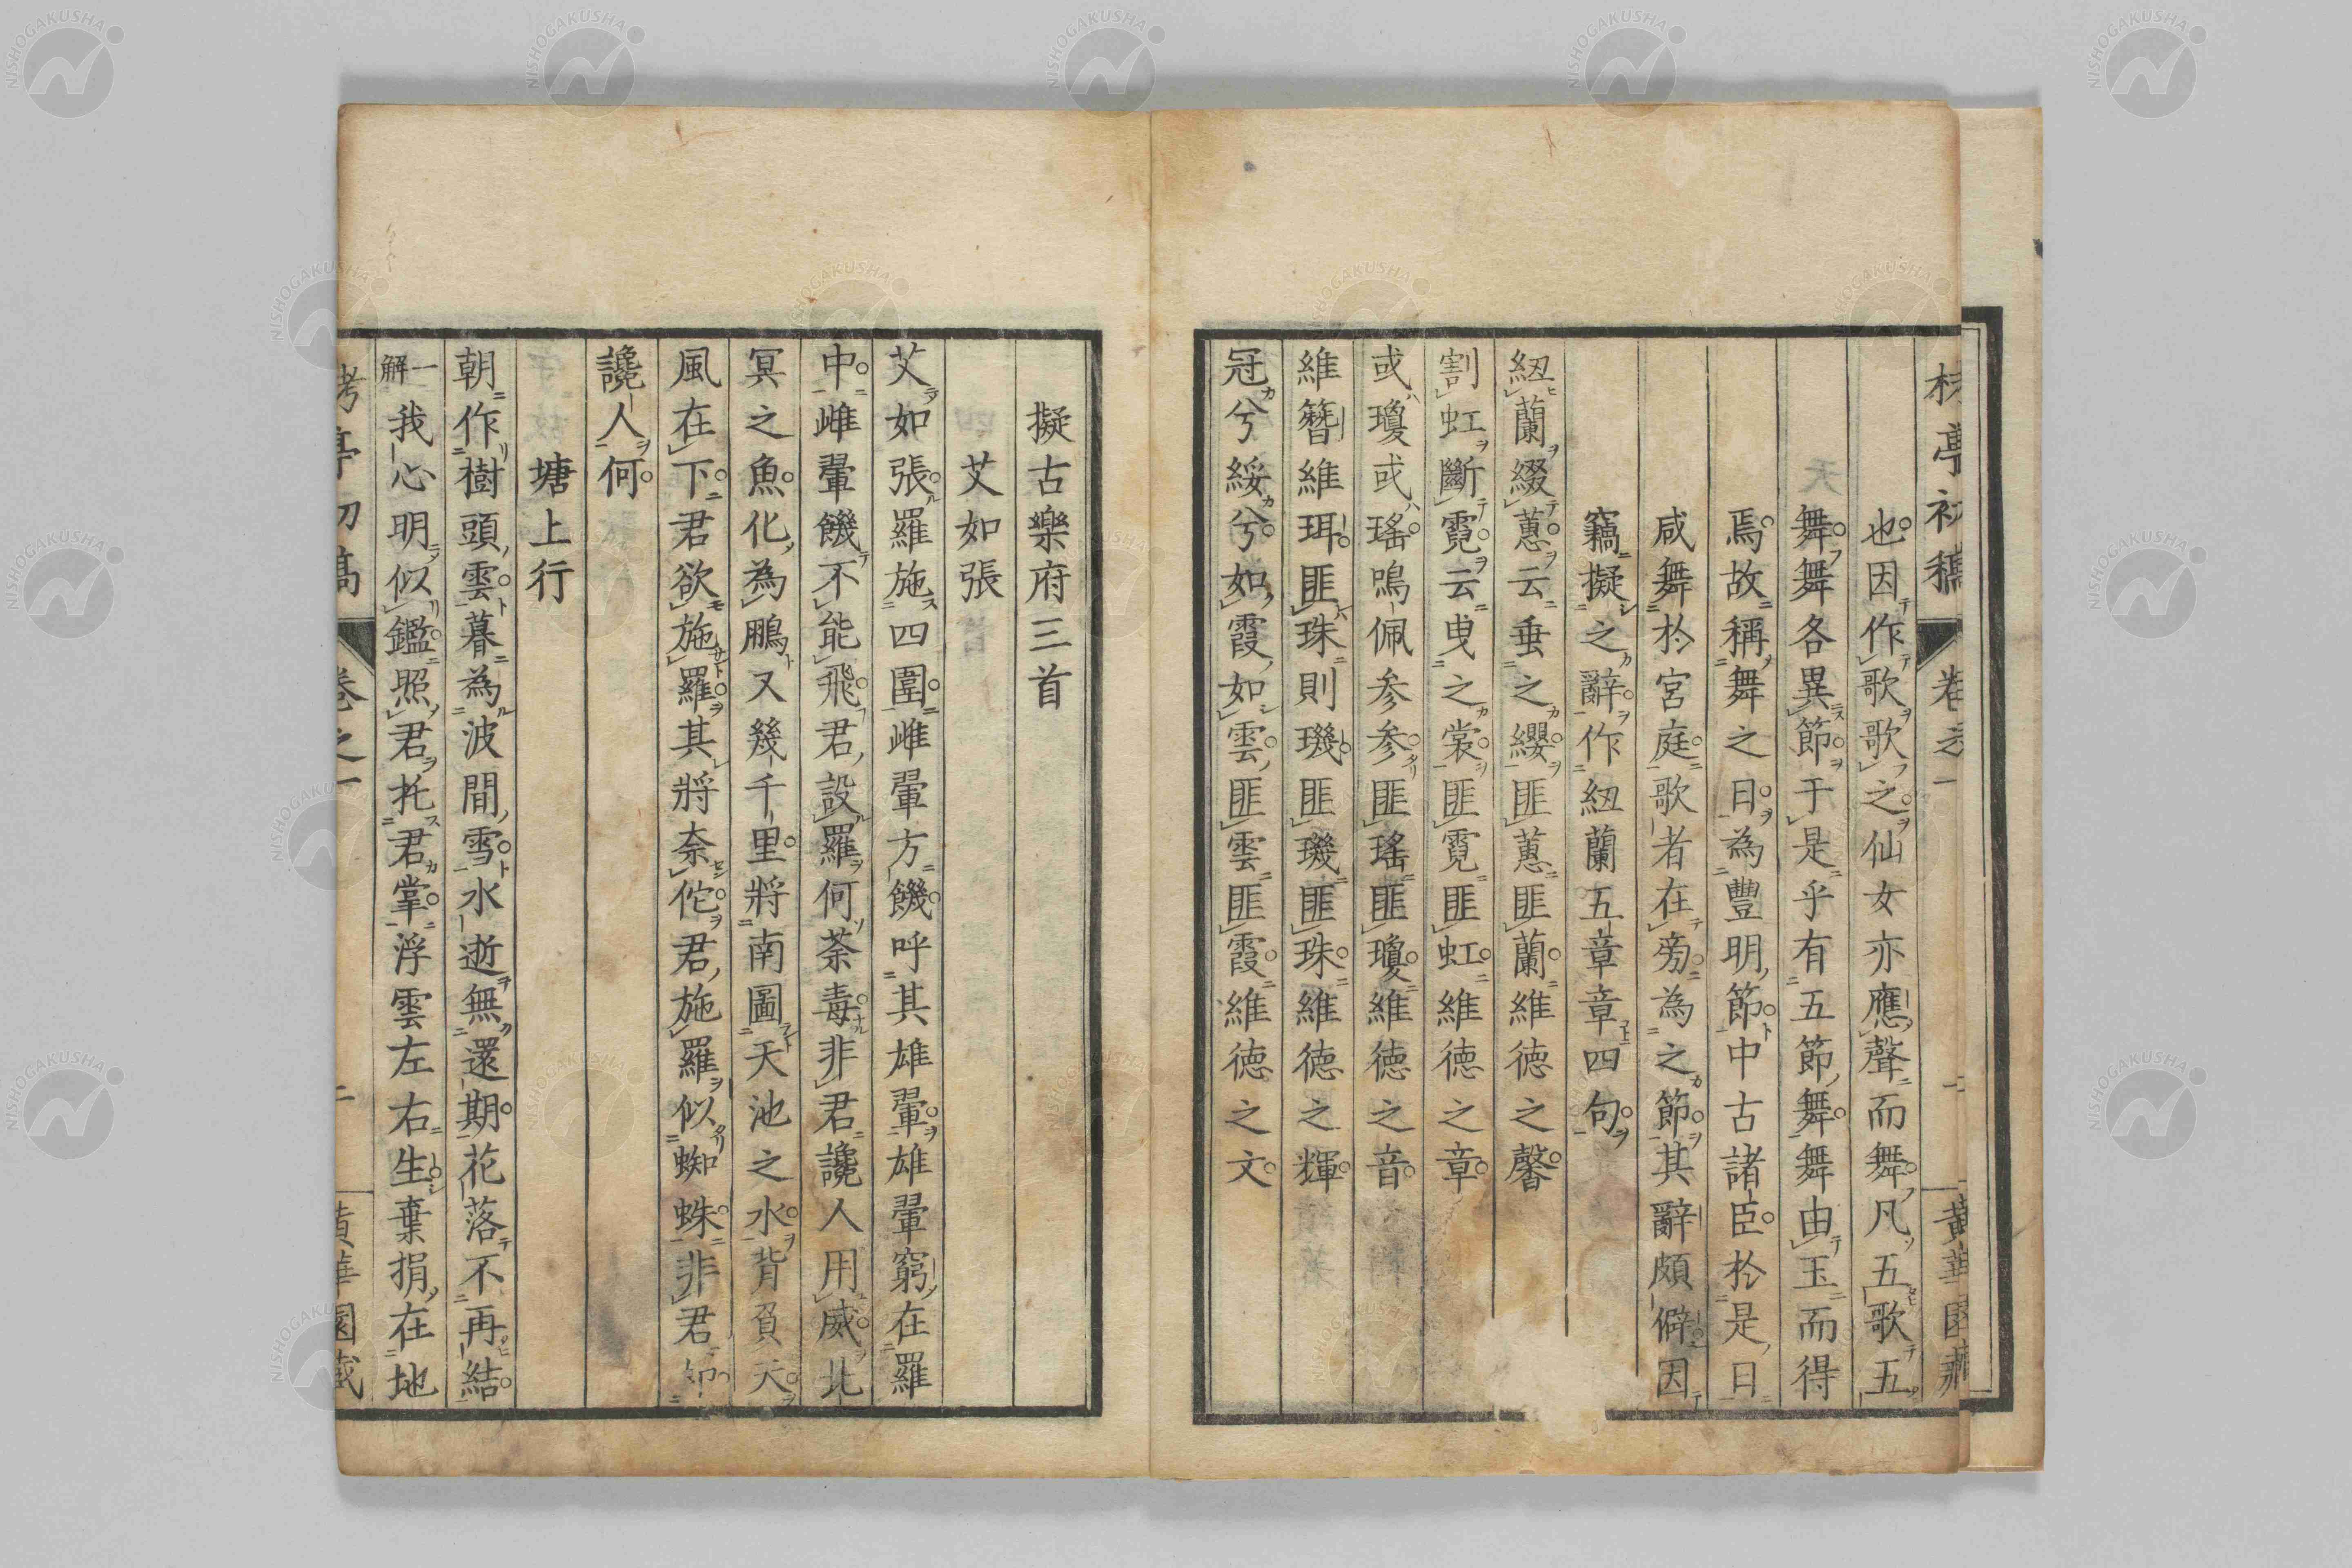 亭初稿 卷之一 黄華園藏
也因作歌歌之仙女亦應聲而舞凡五歌五
舞舞各異節于是乎有五節舞舞由玉而得
焉故稱舞之日為豐明節中古諸臣於是日
咸舞於宮庭歌者在旁為之節其辭頗僻因
竊擬之辭作紐蘭五章章四句
紐蘭綴蕙云垂之纓匪蕙匪蘭維德之馨
割虹斷霓云曳之裳匪霓匪虹維德之章
或瓊或瑤鳴佩参参匪瑤匪瓊維德之音
維簪維珥匪珠則璣匪璣匪珠維德之輝
冠兮綏兮如霞如雲匪雲匪霞維德之文
擬古樂府三首
艾如張
艾如張羅施四圍雌翬方饑呼其雄翬雄翬窮在羅
中雌翬饑不能飛君設羅何荼毒非君讒人用威北
冥之魚化為鵬又幾千里將南圖天池之水背負天
風在下君欲施羅其將奈佗君施羅似蜘蛛非君
讒人何
塘上行
朝作樹頭雲暮為波間雪水逝無還期花落不再結
一解 我心明似鑑照君托君掌浮雲左右生棄捐在地
亭初稿 卷之一 二 黄華園藏